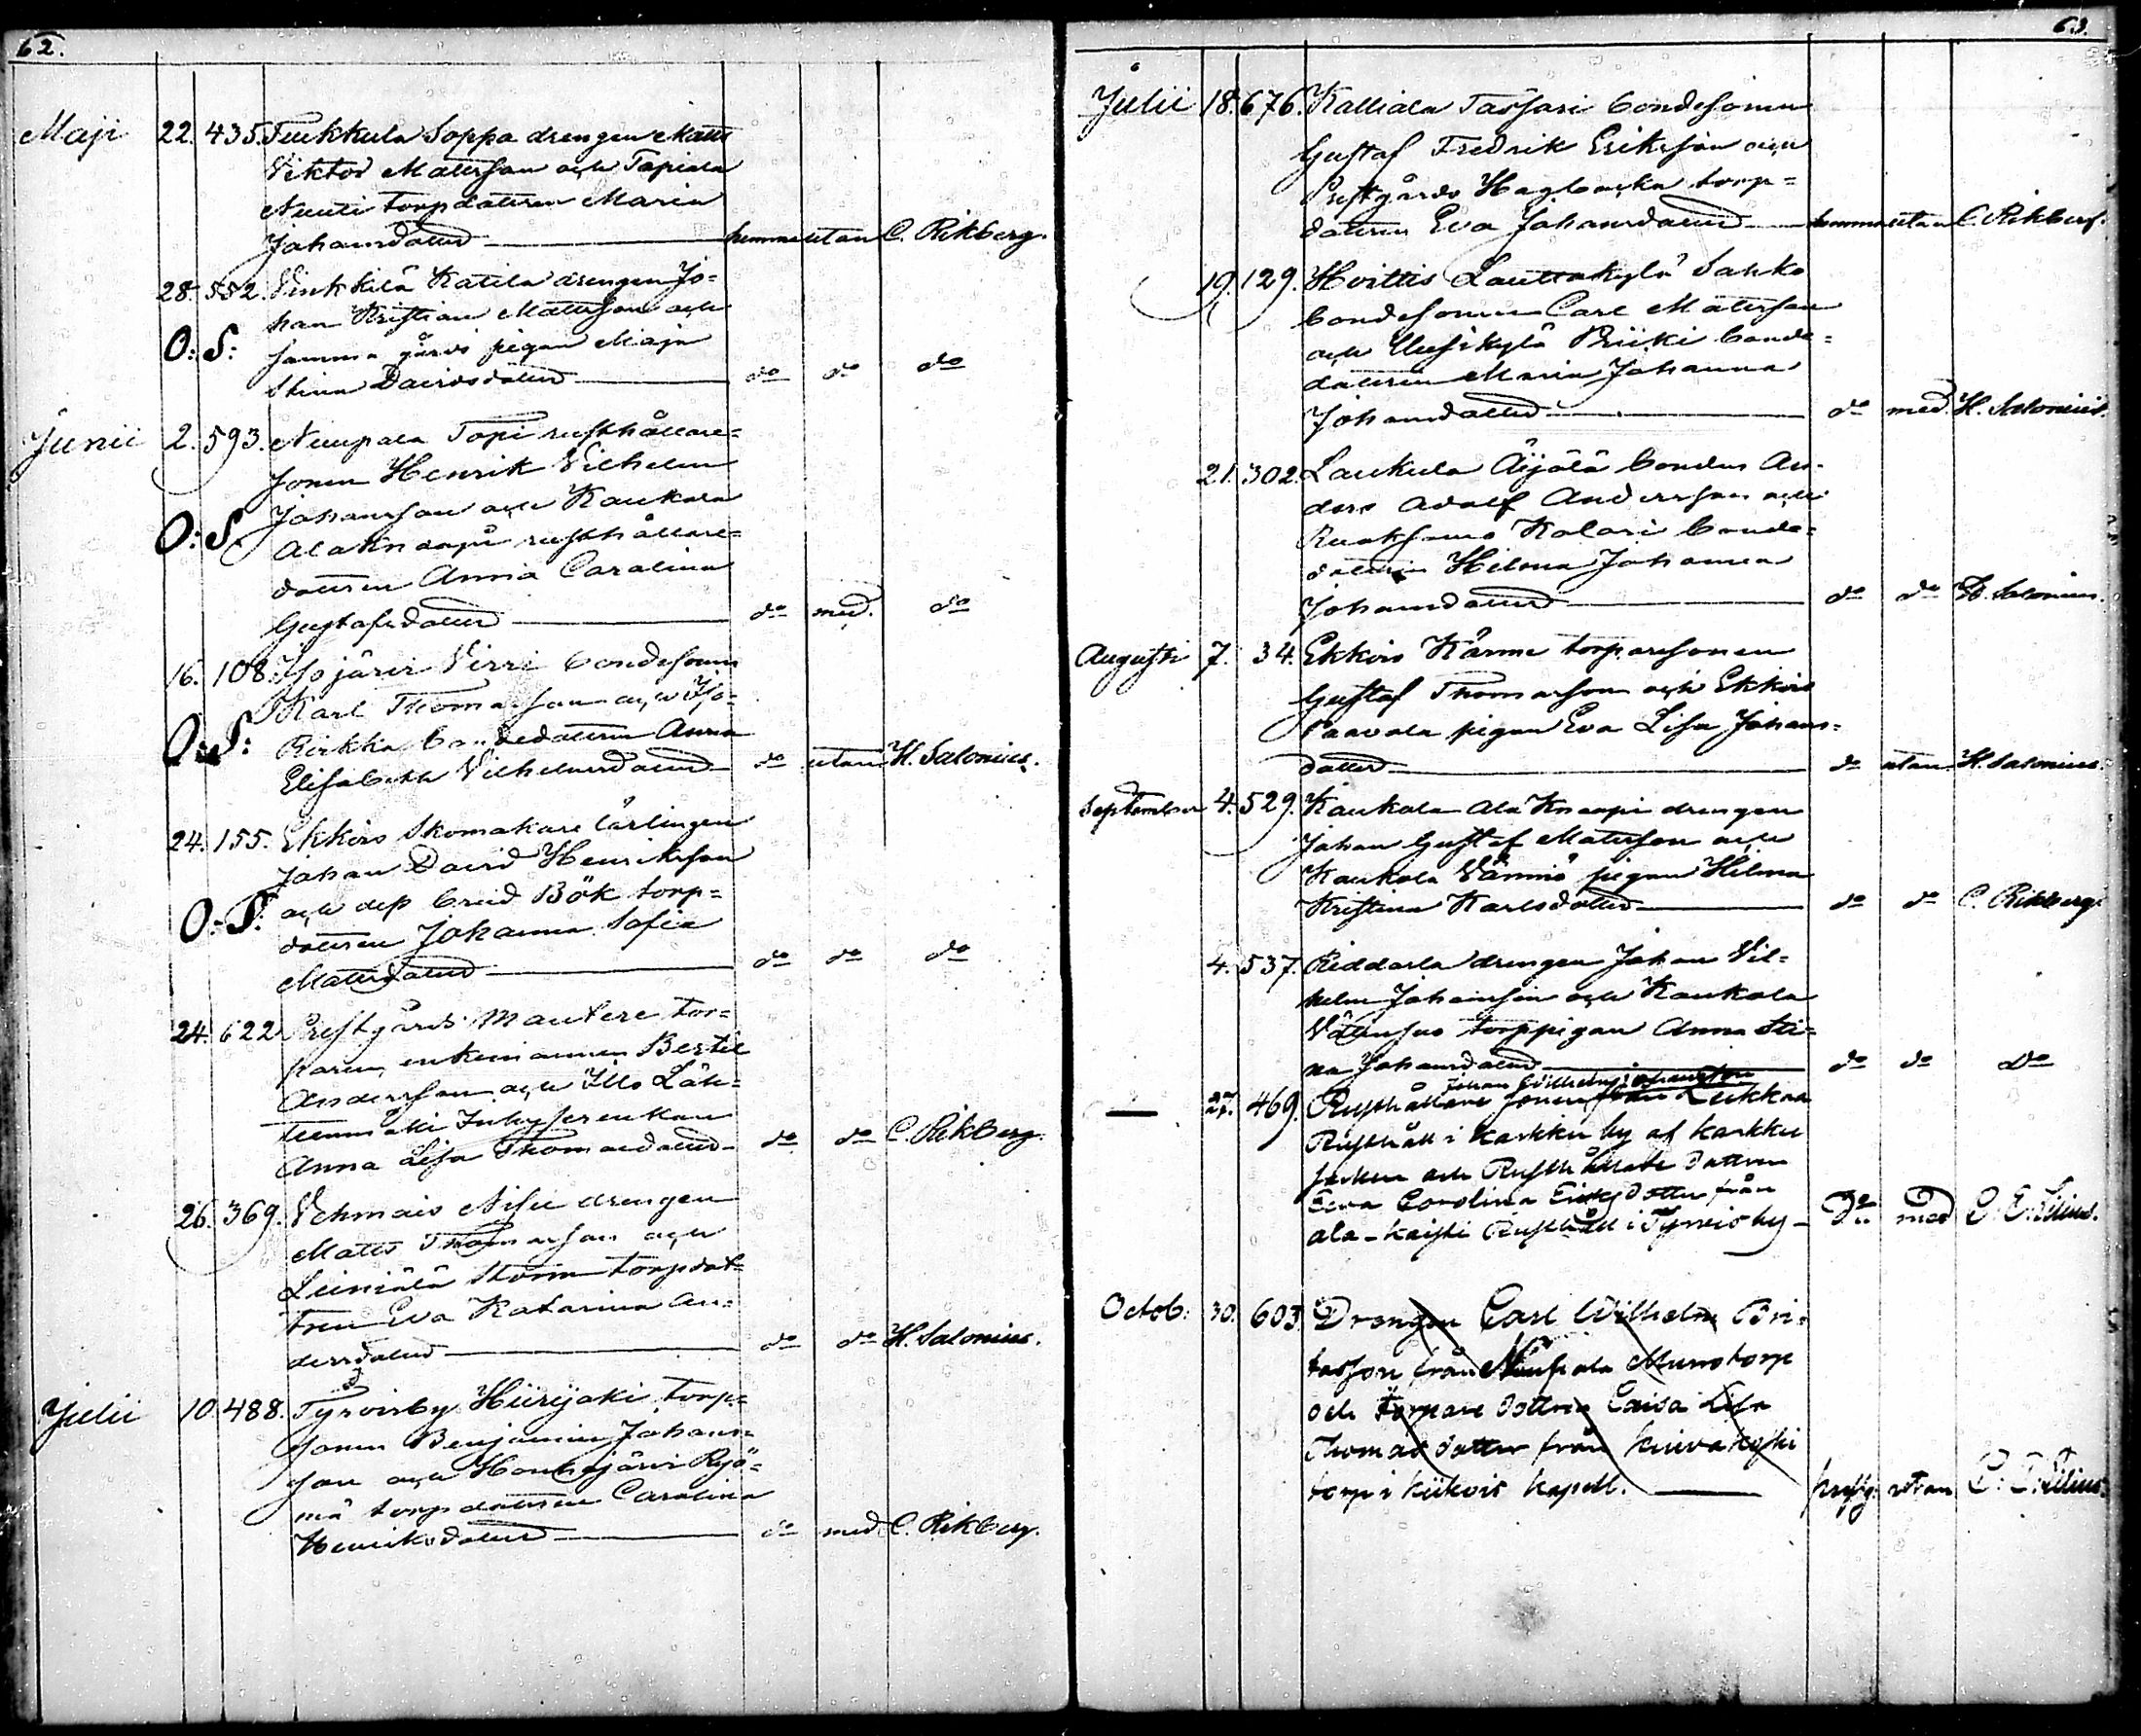 62.
Maji 22. 435. Tuukkula Soppa drengen Matts
Viktor Mattsson och Tapiala
Nuuti torpdottren Maria
Johansdotter — hemma utan C. Rikberg.
28. 552. Vinkkilä Katila drengen Jo=
han Kristian Mattsson och
O: S: samma gårds pigan Maja
Stina Davidsdotter — do do do
Junii 2. 593. Nuupala Topi rusthållare=
sonen Henrik Vilhelm
Johansson och Kaukola
O: S. Ala Knaapi rusthållare=
dottren Anna Carolina
Gustafsdotter — do med. do
16. 108. Isojärvi Virri bondesonen
Karl Thomasson och Iso=
O: S: Rirkko bondedottren Anna
Elisabeth Vilhelmsdotter do utan H. Salonius.
24. 155. Ekkois Skomakare lärlingen
Johan David Henriksson
och dess brud Bök torp=
O: S: dottren Johanna Sofia
Mattsdotter — do do do
24. 622. Prestgårds Mautere tor=
paren, enkemannen Bertil
Andersson och Illo Läh=
teenmäki Inhyses enkan
Anna Lisa Thomasdotter — do do C. Rikberg.
26. 369. Vehmais Nisu drengen
Matts Thomasson och
Leiniälä Storm torpdot=
tren Eva Katarina An=
dersdotter — do do H. Salonius.
Julii 10. 488. Tyrvisby Hiirijoki torp=
sonen Benjamin Johans=
son och Houhajärvi Rejö=
mä torpdottren Carolina
Henriksdotter — do med. C. Rikberg.
63.
Julii 18. 676. Kalliala Tassari bondesonen
Gustaf Fredrik Eriksson och
Prestgårds Hagbacka torp=
dottren Eva Johansdotter — hemma utan C. Rikberg.
19. 129. Hvittis Lauttakylä Sahko
bondesonen Carl Mattsson
och Uusikylä Priiki bonde=
dottren Maria Johanna
Johansdotter — do med. H. Salonius.
21. 302. Laukula Äijälä bonden An=
ders Adolf Andersson och
Ruoksamo Kalari bonde=
dottren Hilma Johanna
Johansdotter — do do H. Salonius.
Augusti 7. 34. Ekkois Kärme torparesonen
Gustaf Thomasson och Ekkois
Paavola pigan Eva Lisa Johans=
dotter — do utan H. Salonius.
September 4. 529. Kaukola Ala Knaapi drengen
Johan Gustaf Mattsson och
Kaukola Vänniö pigan Hilma
Kristina Karlsdotter — do do C. Rikberg
4. 537. Riddarla drengen Johan Vil=
helm Johansson och Kaukola
torppigan Anna Sti=
na Johansdotter — do do Do
Johan Willhelm Johansson
— 27. 469. Rusthållare sonen från Liukkaa
Rusthåll i Karkku by af Karkku
socken och Rusthållare dottren
Eeva Carolina Eriksdotter från
ala-Kaisti Rusthåll i Tyrvis by — Do: med C. E. Lilius.
Octob: 30. 603. Drengen Carl Wilhelm Bri=
tasson från Nuupala Murro torp
och Torpare dottren Eeva Lisa
Thomas dotter från Kuivakoski
torp i Kiikois Kapell. — prestg: utan C. E. Lilius.